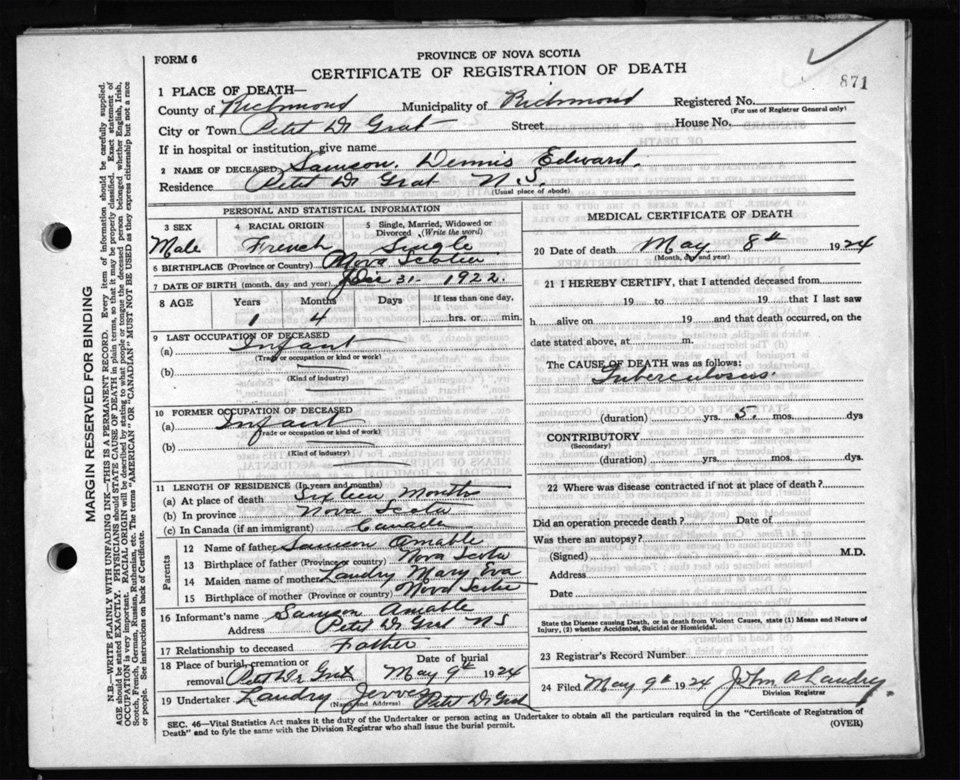 871
FORM 6
PROVINCE OF NOVA SCOTIA
CERTIFICATE OF REGISTRATION OF DEATH
1 PLACE OF DEATH—
County of Richmond Municipality of Richmond Registered No.
(For use of Registrar General only)
City or Town Petit Dr Grat Street House No.
If in hospital or institution, give name
2 NAME OF DECEASED Samson, Dennis Edward.
Residence Petit Dr Grat N.S.
(Usual place of abode)
PERSONAL AND STATISTICAL INFORMATION
3 SEX 4 RACIAL ORIGIN 5 Single, Married, Widowed or Divorced (Write the word)
Male French Single
6 BIRTHPLACE (Province or Country) Nova Scotia
7 DATE OF BIRTH (month, day and year) Dec 31 1922.
8 AGE Years Months Days If less than one day,
1 4 hrs. or min.
9 LAST OCCUPATION OF DECEASED
(a) Infant
(Trade or occupation or kind of work)
(b)
(Kind of industry)
10 FORMER OCCUPATION OF DECEASED
(a) Infant
(Trade or occupation or kind of work)
(b)
(Kind of industry)
11 LENGTH OF RESIDENCE (In years and months)
(a) At place of death Sixteen Months
(b) In province Nova Scotia
(c) In Canada (if an immigrant) Canada
Parents
12 Name of father Samson Amable
13 Birthplace of father (Province or country) Nova Scotia
14 Maiden name of mother Landry Mary Eva
15 Birthplace of mother (Province or country) Nova Scotia
16 Informant's name Samson Amable
Address Petit Dr Grat N S
17 Relationship to deceased Father
18 Place of burial, cremation or removal Petit Dr Grat Date of burial May 9th 1924
19 Undertaker Landry Petit Dr Grat
(Name and Address)
MEDICAL CERTIFICATE OF DEATH
20 Date of death May 8th 1924
(Month, day and year)
21 I HEREBY CERTIFY, that I attended deceased from
19 to 19 that I last saw
h alive on 19 and that death occurred, on the
date stated above, at m.
The CAUSE OF DEATH was as follows:
Tuberculosis.
(duration) yrs. 5. mos. dys
CONTRIBUTORY
(Secondary)
(duration) yrs. mos. dys.
22 Where was disease contracted if not at place of death?
Did an operation precede death? Date of
Was there an autopsy?
(Signed) M.D.
Address
Date
State the Disease causing Death, or in death from Violent Causes, state (1) Means and Nature of
Injury, (2) whether Accidental, Suicidal or Homicidal.
23 Registrar's Record Number
24 Filed May 9th 1924 John A Landry
Division Registrar
SEC. 46—Vital Statistics Act makes it the duty of the Undertaker or person acting as Undertaker to obtain all the particulars required in the "Certificate of Registration of
Death" and to fyle the same with the Division Registrar who shall issue the burial permit. (OVER)
MARGIN RESERVED FOR BINDING
N.B.—WRITE PLAINLY WITH UNFADING INK—THIS IS A PERMANENT RECORD. Every item of information should be carefully supplied.
AGE should be stated EXACTLY. PHYSICIANS should STATE CAUSE OF DEATH in plain terms, so that it may be properly classified. Exact statement of
OCCUPATION is very important. RACIAL ORIGIN will be described by stating to what people or tongue the deceased person belonged whether English, Irish,
Scotch, French, German, Russian, Ruthenian, etc. The terms "AMERICAN" OR "CANADIAN" MUST NOT BE USED as they express citizenship but not a race
or people. See instructions on back of Certificate.